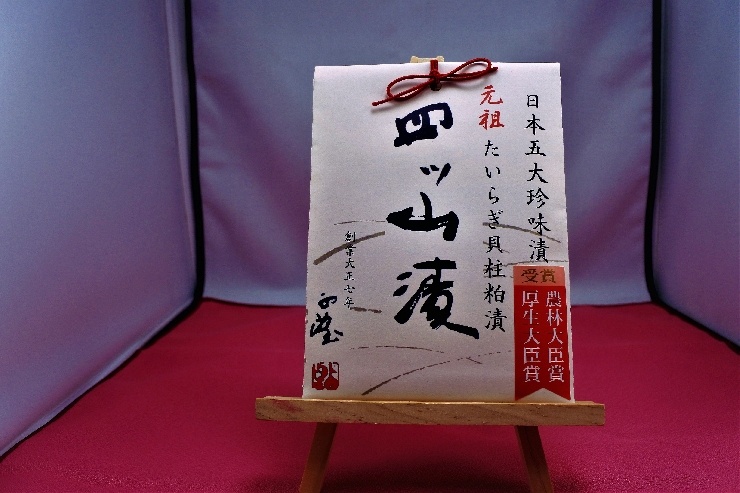 日本五大珍味漬
元祖たいらぎ貝柱粕漬
四ッ山漬
創業大正七年
受賞
農林大臣賞
厚生大臣賞